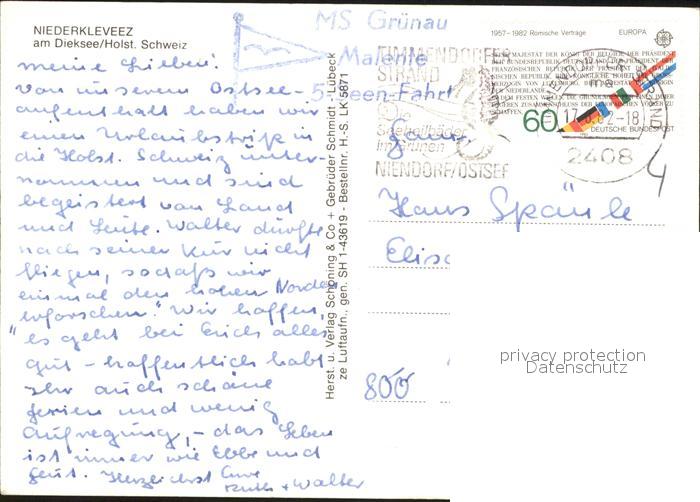 NIEDERKLEVEEZ
am Dieksee/Holst. Schweiz
meine Lieben!
Von unserem Ostsee-
aufenthalt haben wir
einen Urlaubstrip in
die Holst. Schweiz unter-
nommen und sind
begeistert von Land
und Leute. Walter durfte
nach seiner Kur nicht
fliegen, sodaß wir
einmal den hohen Norden
"erforschen". Wir hoffen,
es geht bei Euch alles
gut - hoffentlich habt
Ihr auch schöne
Ferien und wenig
Aufregung, - das Leben
ist immer wie Ebbe und
Flut. Herzlichst Eure
Ruth + Walter
Herst. u. Verlag Schöning & Co + Gebrüder Schmidt - Lübeck
ze Luftaufn., gen. SH 1-43619 - Bestellnr. H.-S. LK 5871
MS Grünau
Malente
5-Seen-Fahrt
TIMMENDORFER
STRAND
im Grünen
NIENDORF/OSTSEE
2408
1957-1982 Römische Verträge EUROPA
60
DEUTSCHE BUNDESPOST
Hans Späule
800
privacy protection
Datenschutz